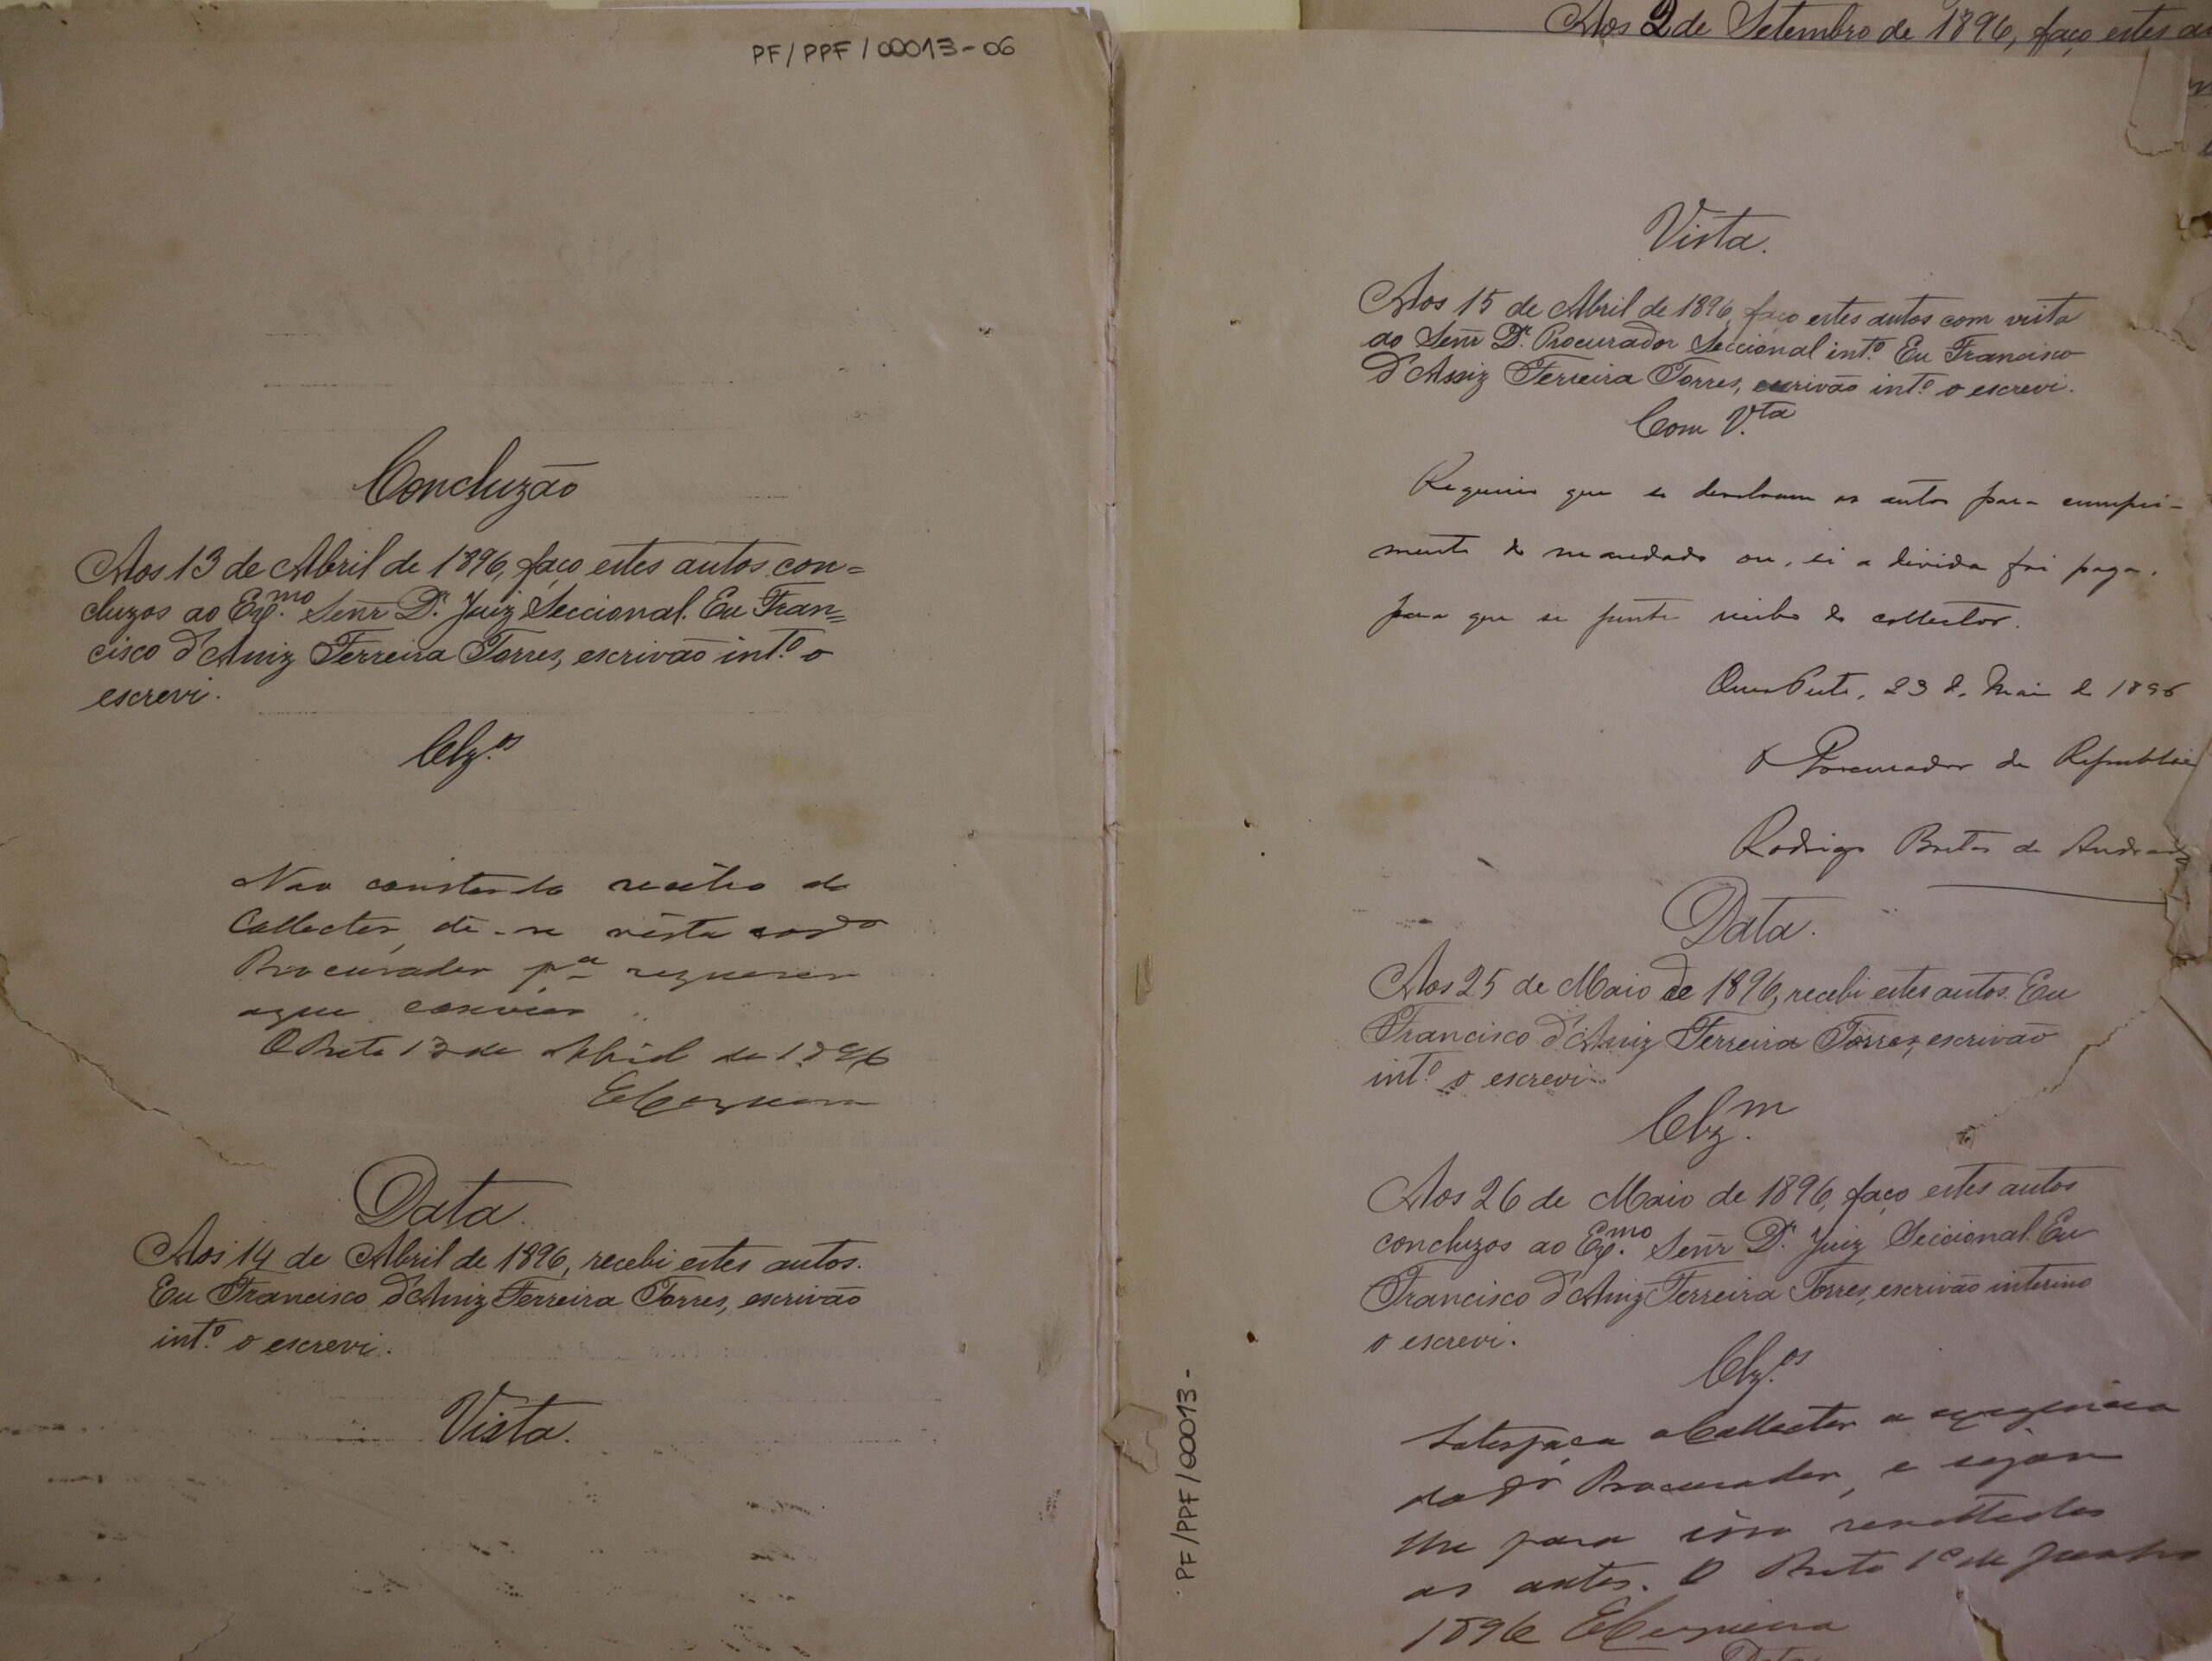 PF/PPF/00013-06
Concluzão
Aos 13 de Abril de 1896, faço estes autos con=
cluzos ao Exmo. Senr Dr. Juiz Seccional. Eu Fran=
cisco d'Assiz Ferreira Torres, escrivão into. o
escrevi.
Clzos
Não constando recibo do
Collector, dê-se vista ao Dr
Procurador pa requerer
o que convier
O Preto 13 de Abril de 1896
Data.
Aos 14 de Abril de 1896, recebi estes autos.
Eu Francisco d'Assiz Ferreira Torres, escrivão
into. o escrevi.
Vista.
Aos 2 de Setembro de 1896, faço estes au
Vista.
Aos 15 de Abril de 1896, faço estes autos com vista
ao Senr Dr. Procurador Seccional into. Eu Francisco
d'Assiz Ferreira Torres, escrivão into. o escrevi.
Com V.ta
Requeiro que se devolvam os autos para cumpri-
mento do mandado ou, si a divida foi paga,
para que se junte recibo do collector.
Ouro Preto, 23 de Maio de 1896
O Procurador da Republica
Rodrigo Bretas de Andrade
Data.
Aos 25 de Maio de 1896, recebi estes autos. Eu
Francisco d'Assiz Ferreira Torres, escrivão
into. o escrevi.
Clzm.
Aos 26 de Maio de 1896, faço estes autos
concluzos ao Exmo. Senr Dr. Juiz Seccional. Eu
Francisco d'Assiz Ferreira Torres, escrivão interino
o escrevi.
Clzos
Satisfaça o Collector a exigencia
do Dr Procurador, e sejam
lhe para isso remettidos
os autos. O Preto 1º de Junho
1896
Data
PF/PPF/00013-